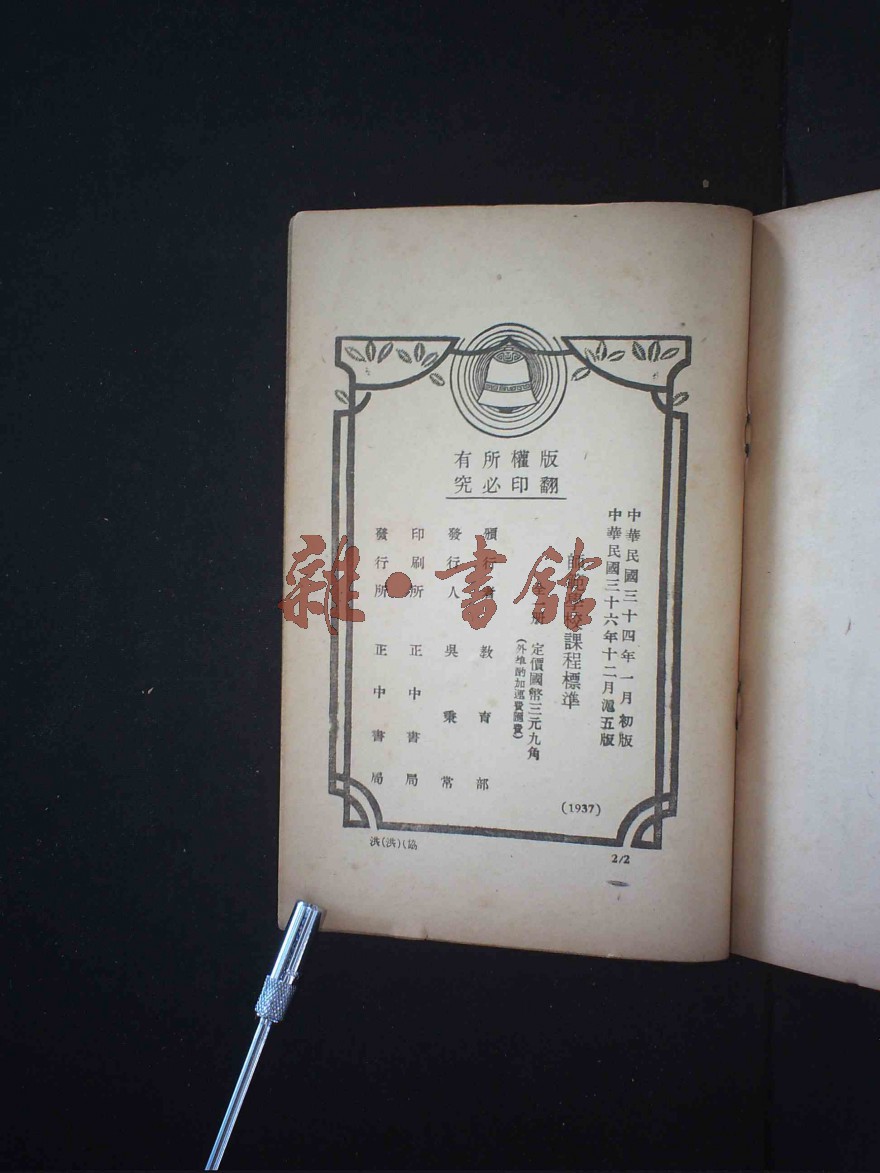 版權所有
翻印必究
中華民國三十四年一月初版
中華民國三十六年十二月滬五版
師範學校課程標準
全一册 定價國幣三元九角
(外埠酌加運費匯費)
頒行者 教育部
發行人 吳秉常
印刷所 正中書局
發行所 正中書局
(1937)
洪(洪)
2/2
雜·書館